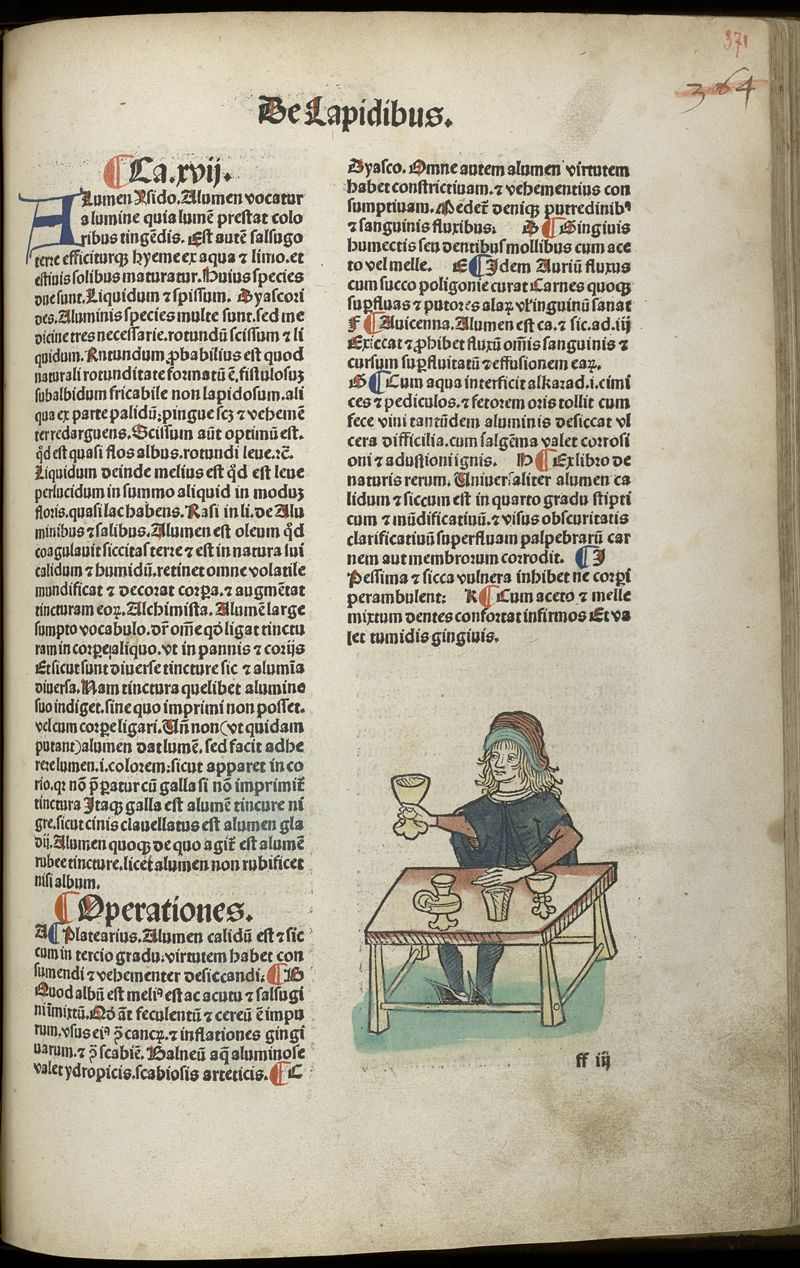 371
364
De Lapidibus.
Ca.xvij.
Alumen Ysido. Alumen vocatur
a lumine quia lumē prestat colo
ribus tingēdis. Est autē salsugo
terre efficiturqꝫ hyeme ex aqua ⁊ limo. et
estiuis solibus maturatur. Huius species
due sunt. Liquidum ⁊ spissum. Dyascori
des. Aluminis species multe sunt. sed me
dicine tres necessarie. rotundū scissum ⁊ li
quidum. Rotundum ꝓbabilius est quod
naturali rotunditate formatū ē. fistulosuꝫ
subalbidum fricabile non lapidosum. ali
qua ex parte palidū: pingue scꝫ ⁊ vehemē
ter redarguens. Scissum aūt optimū est.
qd̄ est quasi flos albus. rotundi leue. ⁊c̄.
Liquidum deinde melius est qd̄ est leue
perlucidum in summo aliquid in moduꝫ
floris. quasi lac habens. Rasi in li. de Alu
minibus ⁊ salibus. Alumen est oleum qd̄
coagulauit siccitas terre ⁊ est in natura sui
calidum ⁊ humidū. retinet omne volatile
mundificat ⁊ decorat corꝑa. ⁊ augmētat
tincturam eoꝝ. Alchimista. Alumē large
sumpto vocabulo. dr̄ om̄e qd̄ ligat tinctu
ram in corꝑe aliquo. vt in pannis ⁊ corijs
Et sicut sunt diuerse tincture sic ⁊ alumīa
diuersa. Nam tinctura quelibet alumine
suo indiget. sine quo imprimi non posset.
vel cum corꝑe ligari. Un̄ non (vt quidam
putant) alumen dat lumē. sed facit adhe
rere lumen. i. colorem: sicut apparet in co
rio. qꝛ nō p̄ꝑatur cū galla si nō imprimit̄
tinctura Itaqꝫ galla est alumē tincure ni
gre. sicut cinis clauellatus est alumen gla
dij. Alumen quoqꝫ de quo agit̄ est alumē
rubee tincture. licet alumen non rubificet
nisi album.
Operationes.
A Platearius. Alumen calidū est ⁊ sic
cum in tercio gradu. virtutem habet con
sumendi ⁊ vehementer desiccandi: B
Quod albū est meliꝰ est ac acutu ⁊ salsugi
nī mixtū. Qd̄ āt feculentū ⁊ cereū ē impu
rum. vsus eiꝰ ꝯ̄ cancꝝ. ⁊ inflationes gingi
uarum. ⁊ ꝯ̄ scabiē. Balneū aq̄ aluminose
valet ydropicis. scabiosis arteticis. C
Dyasco. Omne autem alumen virtutem
habet constrictiuam. ⁊ vehementius con
sumptiuam. Medet̄ deniqꝫ putredinibꝰ
⁊ sanguinis fluxibus: D Gingiuis
humectis seu dentibus mollibus cum ace
to vel melle. E Idem Auriū fluxus
cum succo poligonie curat Carnes quoqꝫ
suꝑfluas ⁊ putores alaꝝ vl̓ inguinū sanat
F Auicenna. Alumen est ca. ⁊ sic. ad. iij
Exiccat ⁊ ꝓhibet fluxū om̄is sanguinis ⁊
cursum suꝑfluitatū ⁊ effusionem eaꝝ.
G Cum aqua interficit alkarad. i. cimi
ces ⁊ pediculos. ⁊ fetorem oris tollit cum
fece vini tantūdem aluminis desiccat vl
cera difficilia. cum salgēma valet corrosi
oni ⁊ adustioni ignis. H Ex libro de
naturis rerum. Uniuersaliter alumen ca
lidum ⁊ siccum est in quarto gradu stipti
cum ⁊ mūdificatiuū. ⁊ visus obscuritatis
clarificatiuū superfluam palpebrarū car
nem aut membrorum corrodit. I
Pessima ⁊ sicca vulnera inhibet ne corꝑi
perambulent: K Cum aceto ⁊ melle
mixtum dentes confortat infirmos Et va
let tumidis gingiuis.
ff iij